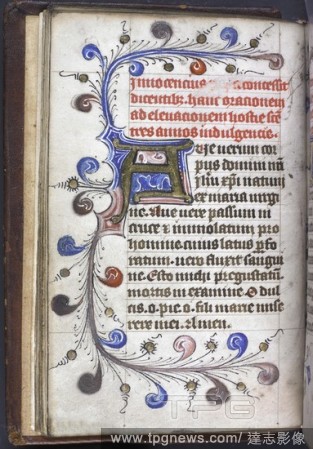 Innocencius concessit
dicentibz hanc orationem
ad elevationem hostie
tres annos indulgencie.
Aue uerum cor
pus domini nri
ihu xpi natum
ex maria uirgi
ne. Aue uere passum in
cruce & immolatum pro
homine. cuius latus p̱fo
ratum. uero fluxit sangui
ne. Esto michi pregustatū
mortis in examine. O dul
cis. o. pie. o. fili marie mise
rere mei. Amen.
TPG
www.tpgnews.com/ 達志影像